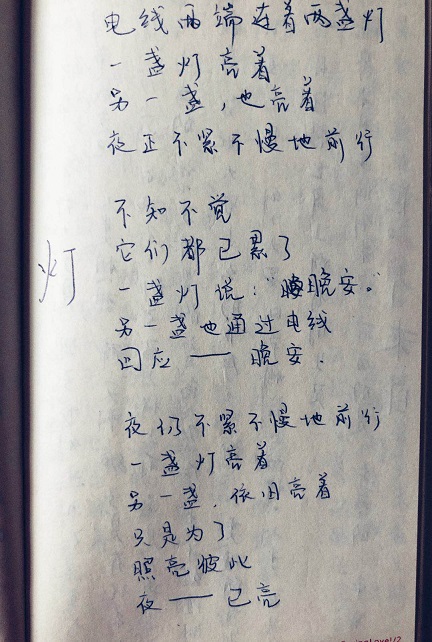 灯
电线两端连着两盏灯
一盏灯亮着
另一盏,也亮着
夜正不紧不慢地前行
不知不觉
它们都已累了
一盏灯说:“晚安。”
另一盏也通过电线
回应——晚安.
夜仍不紧不慢地前行
一盏灯亮着
另一盏,依旧亮着
只是为了
照亮彼此
夜——已亮